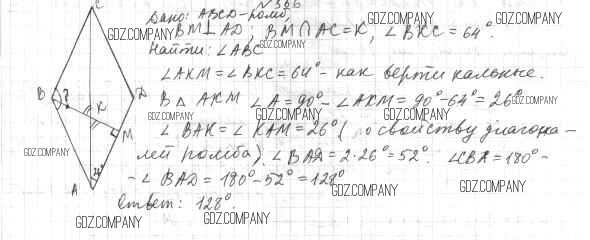 № 386
Дано: ABCD-ромб,
BM⊥AD, BM∩AC=K, ∠BKC=64°.
Найти: ∠ABC
∠AKM=∠BKC=64°- как вертикальные.
В △ AKM ∠A=90°-∠AKM=90°-64°=26°
∠BAK=∠KAM=26° (по свойству диагона-
лей ромба), ∠BAD=2·26°=52°. ∠CBA=180°-
-∠BAD=180°-52°=128°
Ответ: 128°.
C
B
?
K
D
M
A
GDZ.COMPANY
GDZ.COMPANY
GDZ.COMPANY
GDZ.COMPANY
GDZ.COMPANY
GDZ.COMPANY
GDZ.COMPANY
GDZ.COMPANY
GDZ.COMPANY
GDZ.COMPANY
GDZ.COMPANY
GDZ.COMPANY
GDZ.COMPANY
GDZ.COMPANY